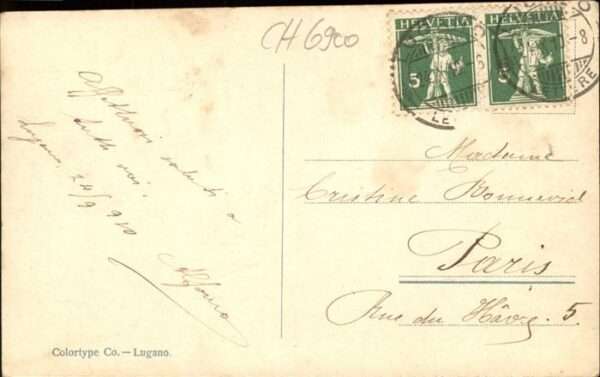 CH 6900
HELVETIA
5
HELVETIA
5
Affettuosi saluti a
tutti voi!
Lugano, 24/9 910
Alfonso
Madame
Cristine Bonnevid
Paris
Rue du Hâvre. 5.
Colortype Co. — Lugano.